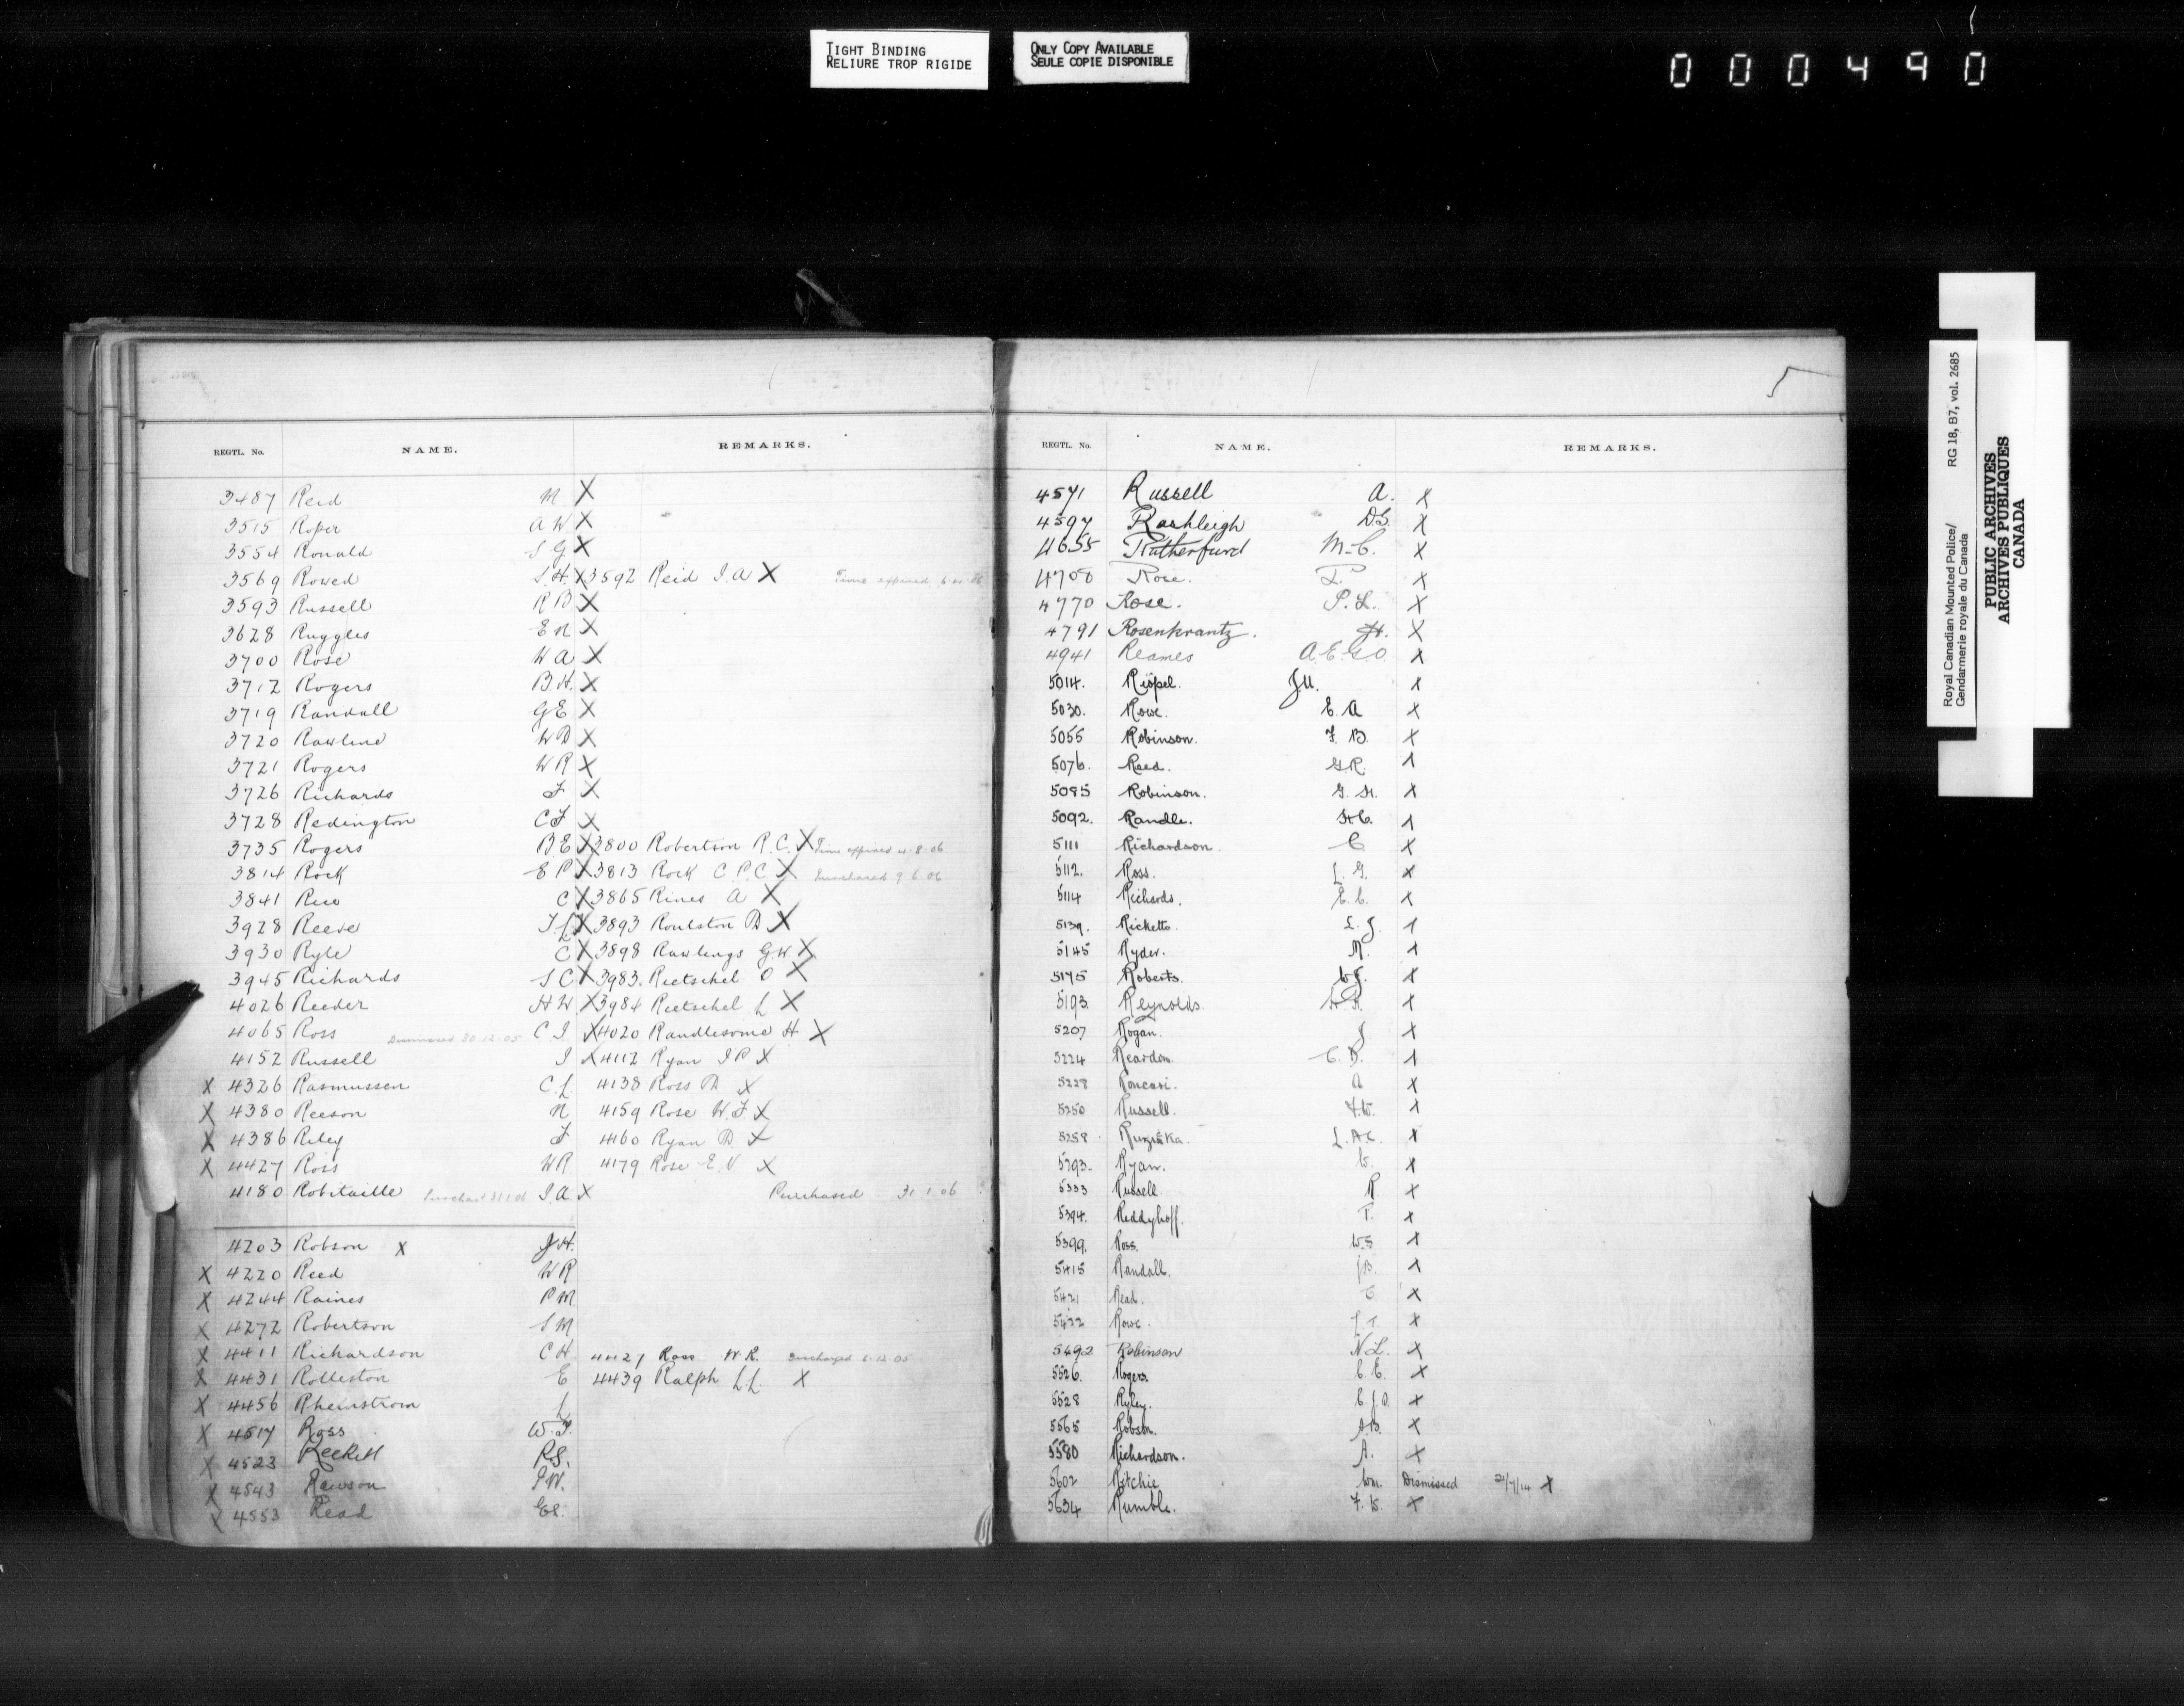 TIGHT BINDING
RELIURE TROP RIGIDE
ONLY COPY AVAILABLE
SEULE COPIE DISPONIBLE
000490
5
REGTL. No. NAME. REMARKS.
3487 Reid M X
3515 Roper A W X
3554 Ronald S G X
3569 Rowed S.H. X 3592 Reid J.A X Time expired
3593 Russell R B X
3628 Ruggles E N X
3700 Rose W A X
3712 Rogers B.H. X
3719 Randall G E X
3720 Rawline W D X
3721 Rogers W R X
3726 Richards F X
3728 Redington C F X
3735 Rogers B.E X 3800 Robertson R.C. X Time expired 8.06
3814 Rock E P X 3813 Rock C.P.C X 9 6 06
3841 Rice C X 3865 Rines A X
3928 Reeve T.L X 3893 Roulston D X
3930 Ryle C X 3898 Rawlings G.W. X
3945 Richards S C X 3983. Rietschel O X
4026 Reeder H W X 3984 Rietschel L X
4065 Ross 30.12.05 C.J. X 4020 Randlesome H X
4152 Russell J X 4112 Ryan J P X
X 4326 Rasmussen C.L 4138 Ross D X
X 4380 Reeson N 4159 Rose W.F X
X 4386 Riley F 4160 Ryan D X
X 4427 Ross W R 4179 Rose E.V X
4180 Robitaille 31.1.06 J.A X Purchased 31 1 06
4203 Robson X J.H.
X 4220 Reed W R
X 4244 Raines P M
X 4272 Robertson S M
X 4411 Richardson C H 4427 Ross W.R. Discharged 6.12.05
X 4431 Rolleston E 4439 Ralph L.L. X
X 4456 Rheinstrom L
X 4517 Ross W.J.
X 4523 Reckitt R.S.
X 4543 Rawson P.W.
X 4553 Read
REGTL. No. NAME. REMARKS.
4571 Russell A. X
4597 Rashleigh D.S. X
4655 Rutherfurd M.C. X
4708 Rose. X
4770 Rose. P.L. X
4791 Rosenkrantz. H. X
4941 Reames A.E.G.O X
5014. Riopel. J.U. X
5030. Rowe. E.A X
5055 Robinson. F.B. X
5076. Reed. G.R. X
5085 Robinson. G.H. X
5092. Randle. H.C. X
5111 Richardson. C X
5112. Ross. L.G. X
5114 Richards. E.C. X
5139. Ricketts. L.J. X
5145 Ryder. M. X
5175 Roberts. W.J. X
5193. Reynolds. H.F. X
5207 Rogan. J X
5224 Reardon. C.D. X
5228 Roncari. A X
5250 Russell. F.W. X
5258 Ruzicka. L.A.C. X
5293. Ryan. W. X
5333 Russell R X
5394. Reddyhoff. T. X
5399. Ross. W.S X
5415 Randall. J.B. X
5421 Read. X
5422 Rowe. J.T. X
5492 Robinson N.L. X
5526. Rogers. C.E. X
5528 Ryley. C.J.D. X
5565 Robson. A.B. X
5580 Richardson. A. X
5602 Ritchie Wm. Dismissed 21/7/14 X
5634 Rumble. F.W. X
Royal Canadian Mounted Police/ RG 18, B7, vol. 2685
Gendarmerie royale du Canada
PUBLIC ARCHIVES
ARCHIVES PUBLIQUES
CANADA